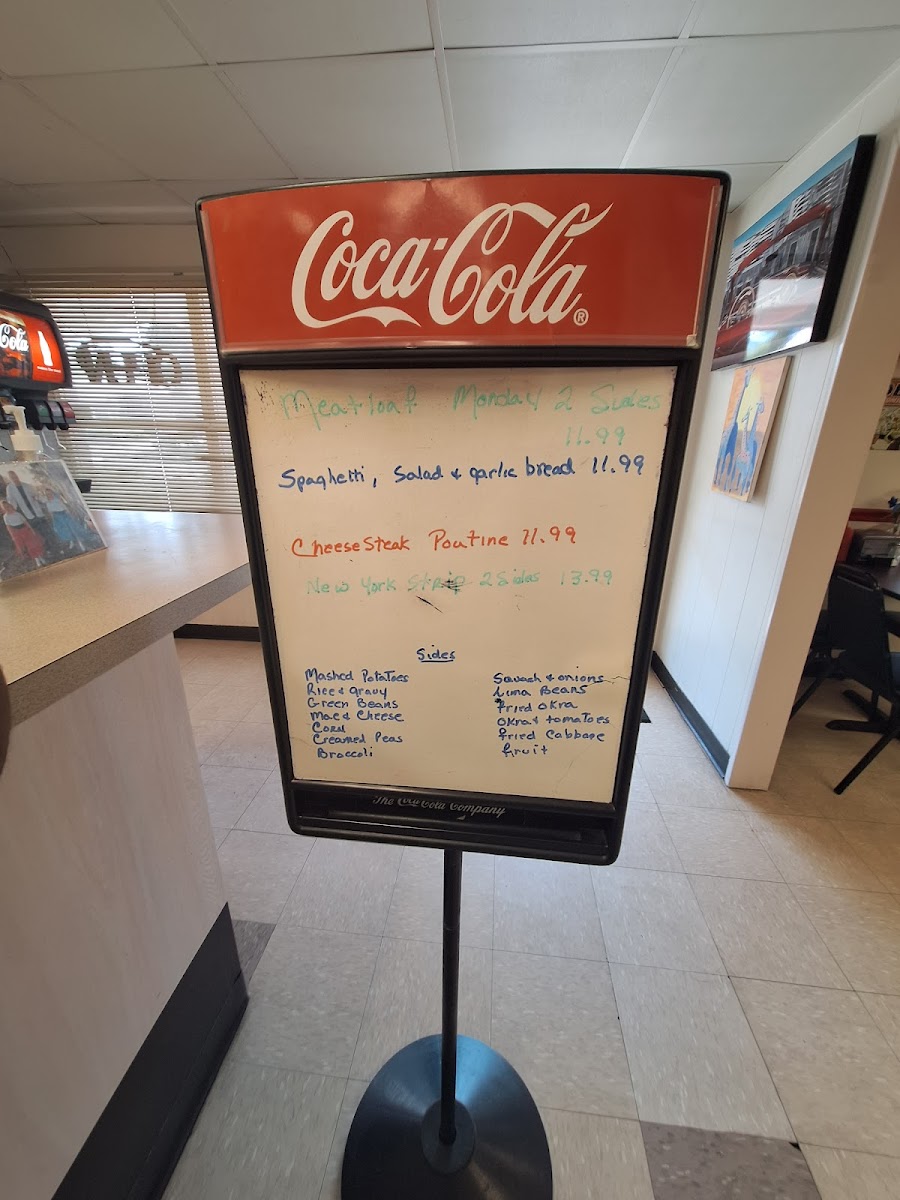 Coca-Cola®
Cola
Meatloaf Monday 2 Sides
11.99
Spaghetti, Salad & garlic bread 11.99
Cheese Steak Poutine 11.99
New York Strip 2 Sides 13.99
Sides
Mashed Potatoes
Rice & gravy
Green Beans
Mac & Cheese
Corn
Creamed Peas
Broccoli
Squash & onions
Lima Beans
Fried Okra
Okra & tomatoes
Fried Cabbage
fruit
The Coca-Cola Company